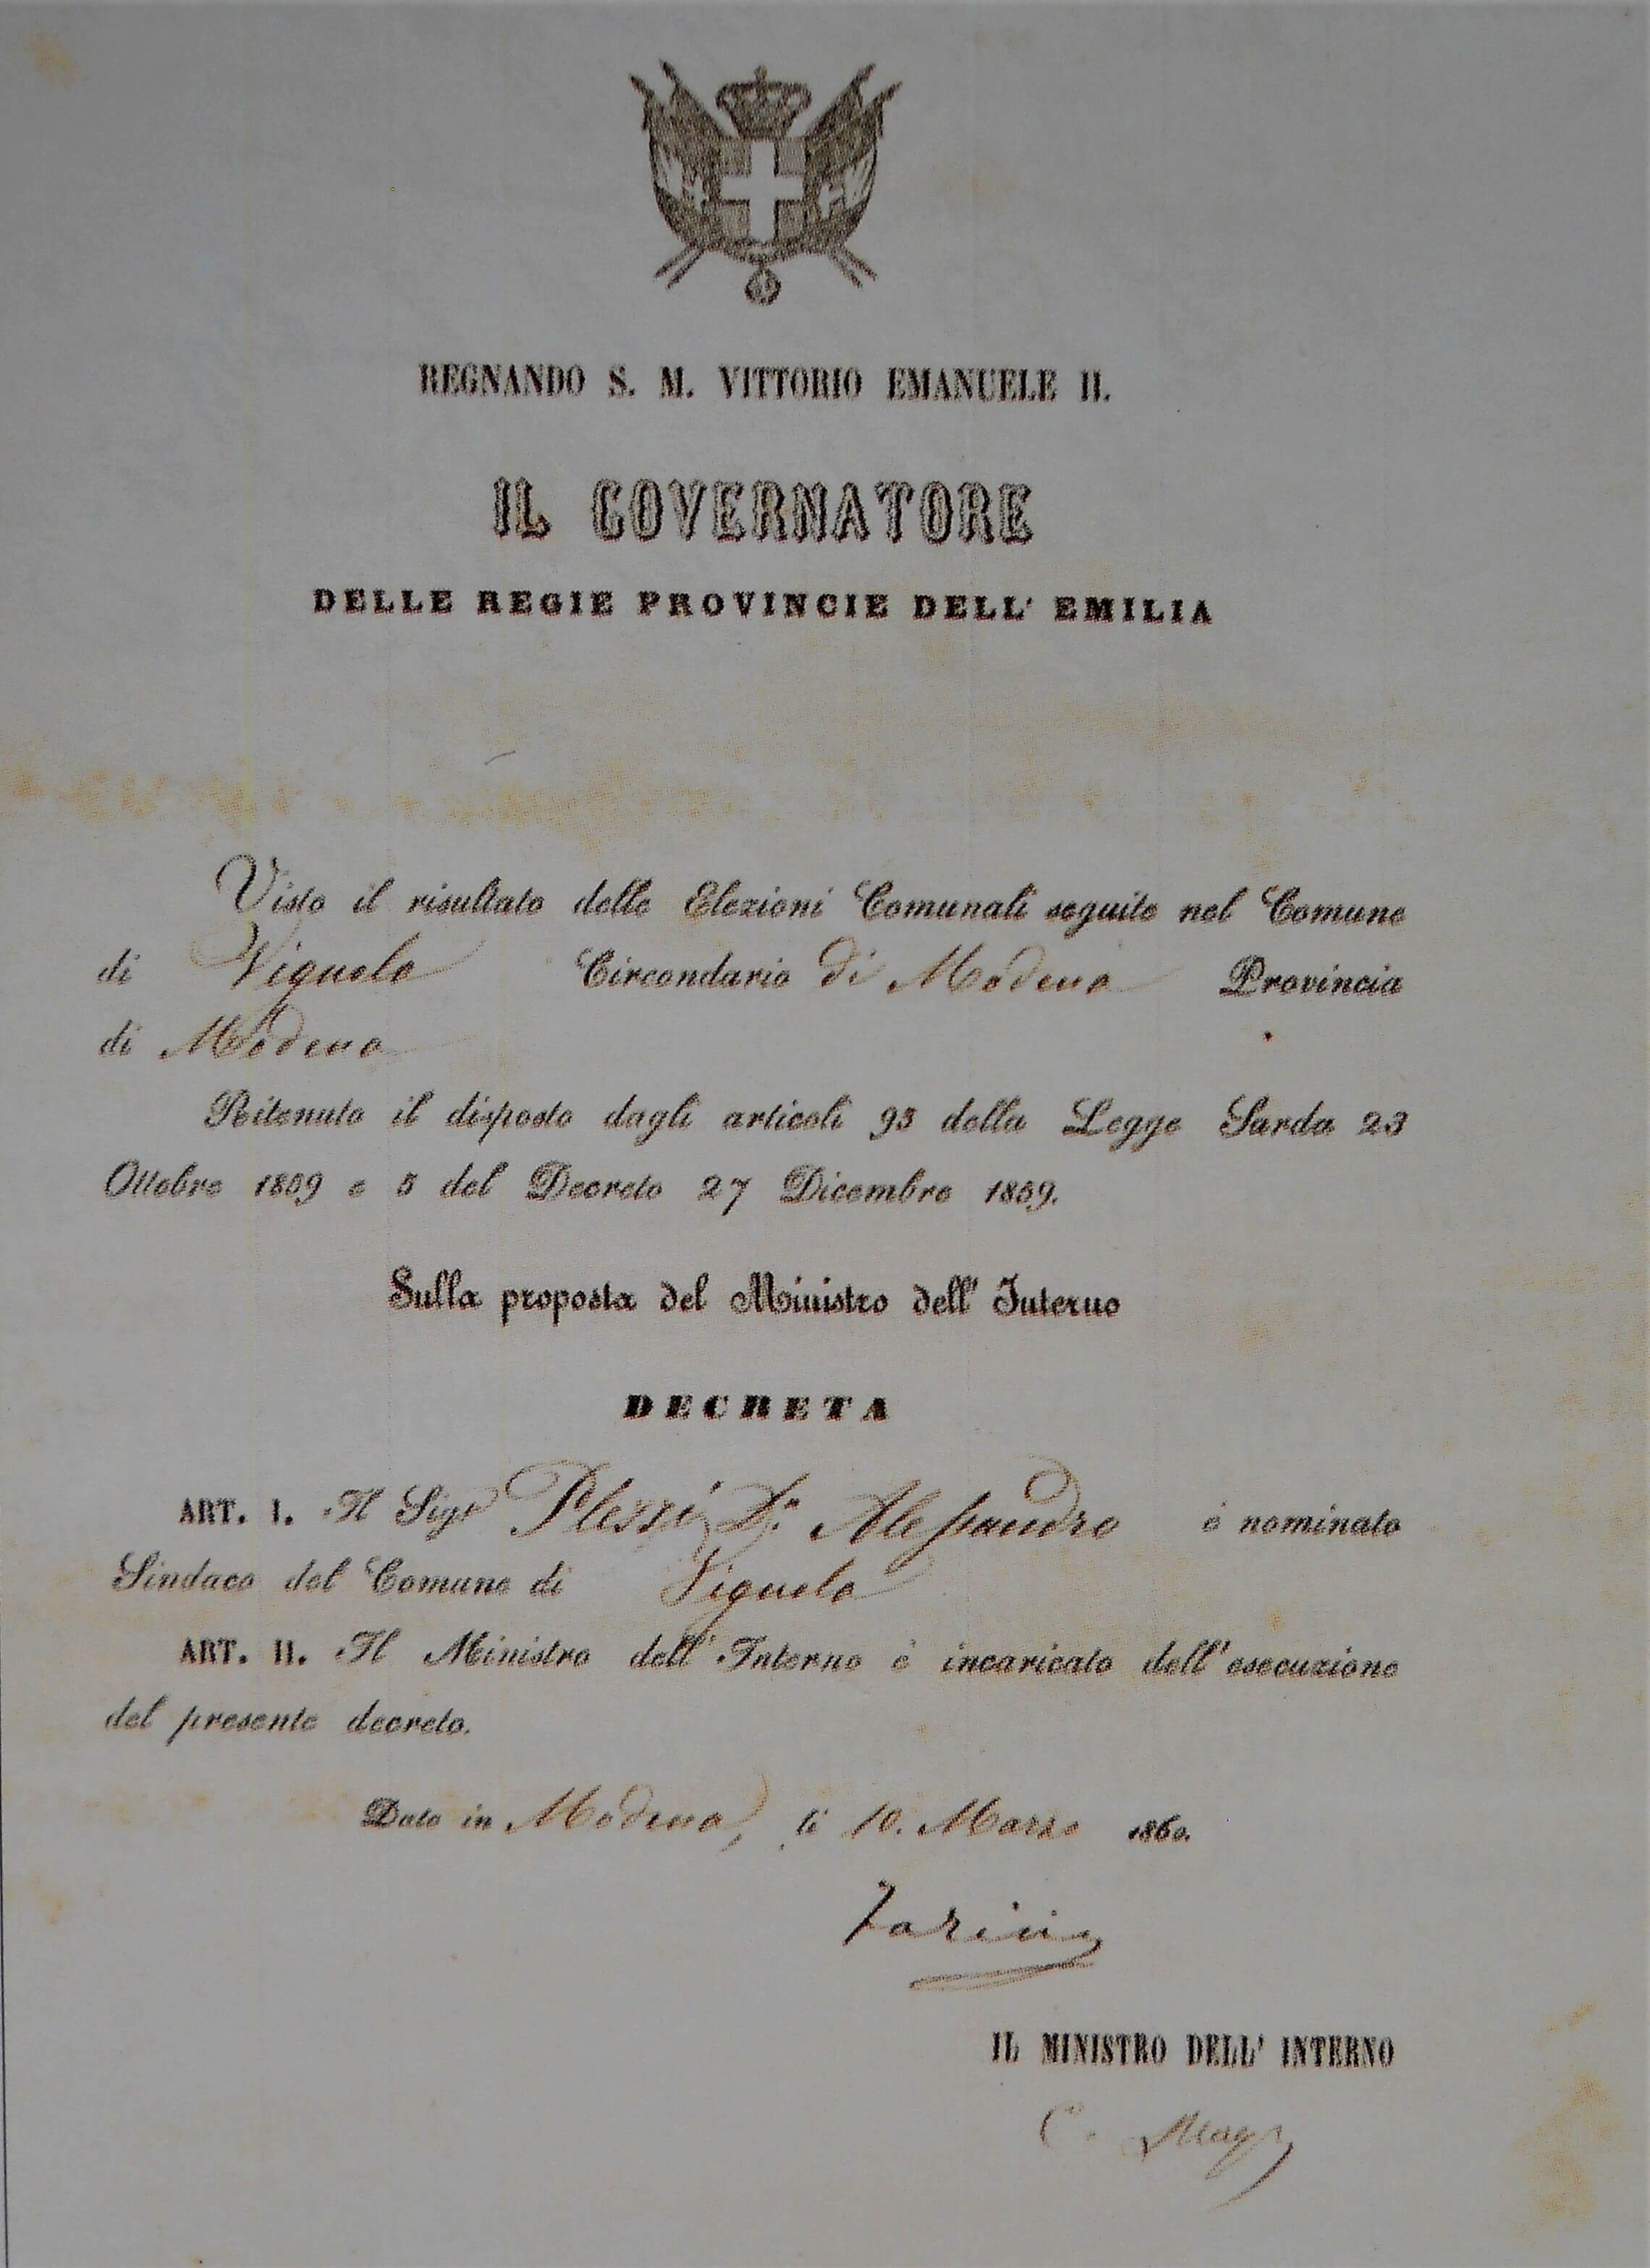 REGNANDO S. M. VITTORIO EMANUELE II.
IL GOVERNATORE
DELLE REGIE PROVINCIE DELL' EMILIA
Visto il risultato delle Elezioni Comunali seguite nel Comune
di Vignola Circondario di Modena Provincia
di Modena
Ritenuto il disposto dagli articoli 95 della Legge Sarda 23
Ottobre 1859 e 5 del Decreto 27 Dicembre 1859.
Sulla proposta del Ministro dell' Interno
DECRETA
ART. I. Il Sigr Plessi Dr. Alessandro è nominato
Sindaco del Comune di Vignola
ART. II. Il Ministro dell' Interno è incaricato dell' esecuzione
del presente decreto.
Dato in Modena, li 10. Marzo 1860.
Farini
IL MINISTRO DELL' INTERNO
C.